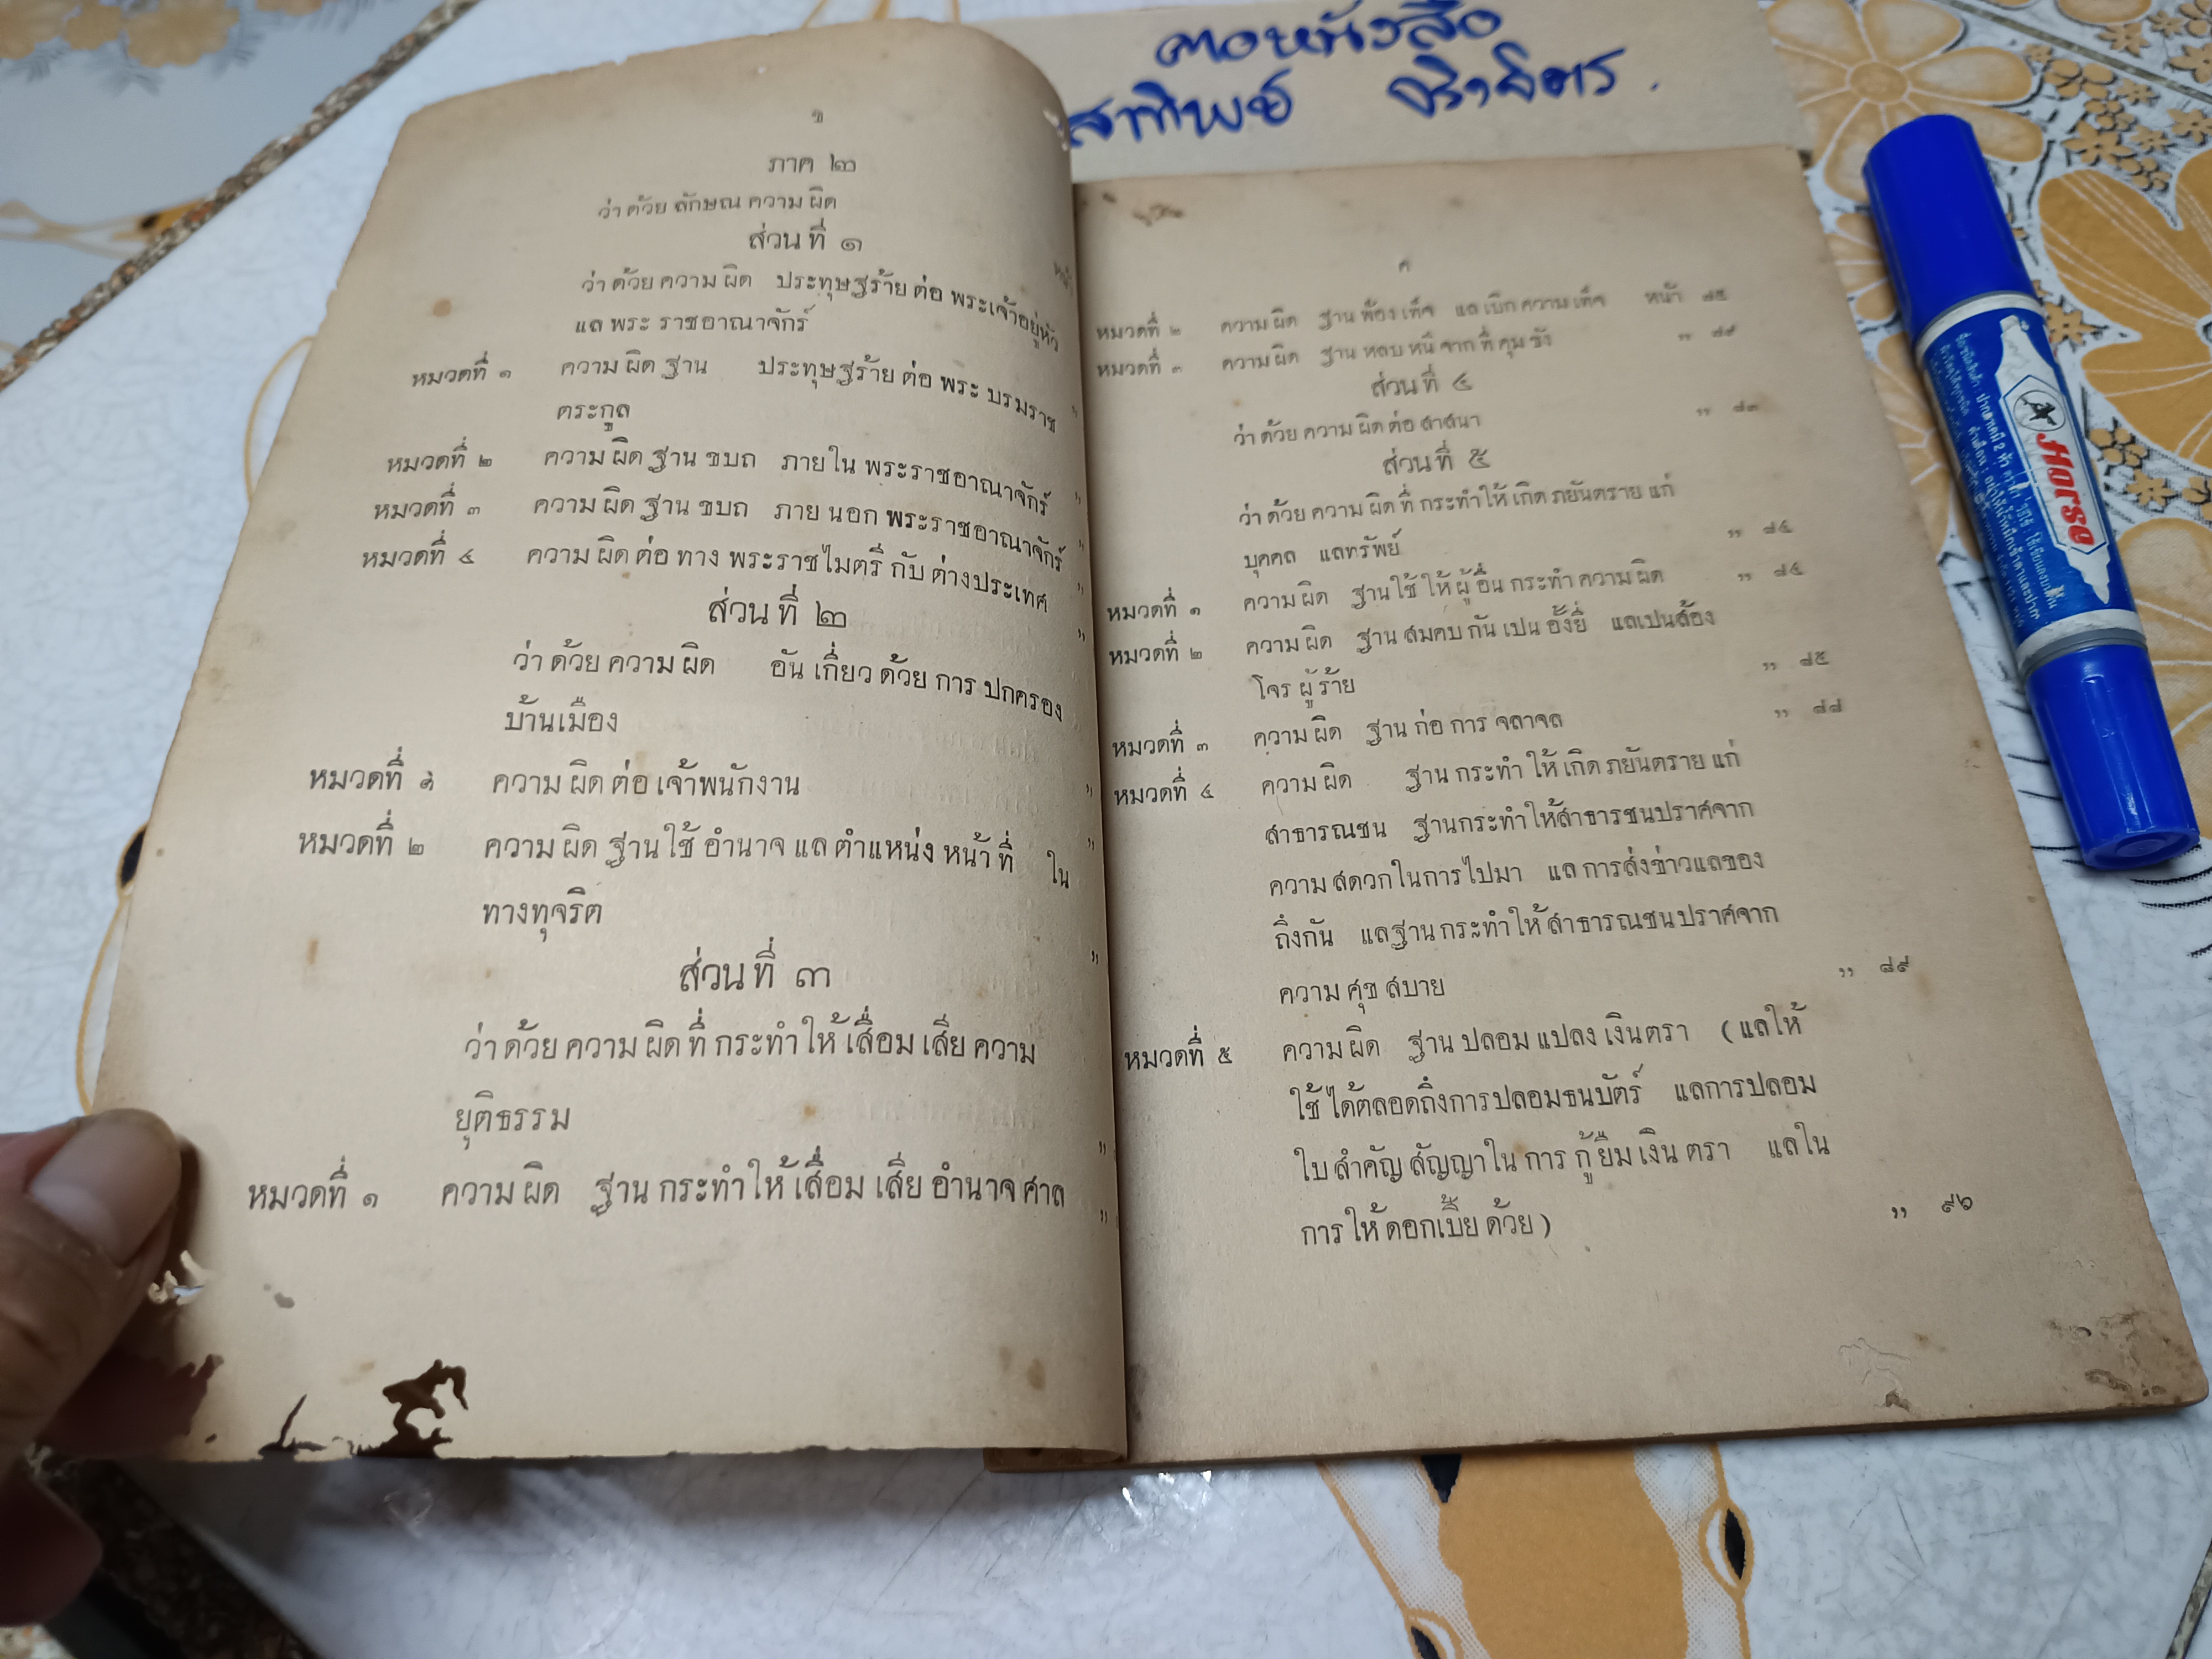 ฃ
ภาค ๒
ว่า ด้วย ลักษณ ความ ผิด
ส่วน ที่ ๑
ว่า ด้วย ความ ผิด ประทุษฐร้าย ต่อ พระเจ้าอยู่หัว
แล พระ ราชอาณาจักร์
หมวดที่ ๑ ความ ผิด ฐาน ประทุษฐร้าย ต่อ พระ บรมราช ,,
ตระกูล
หมวดที่ ๒ ความ ผิด ฐาน ขบถ ภายใน พระราชอาณาจักร์ ,,
หมวดที่ ๓ ความ ผิด ฐาน ขบถ ภาย นอก พระราชอาณาจักร์ ,,
หมวดที่ ๔ ความ ผิด ต่อ ทาง พระราชไมตรี กับ ต่างประเทศ ,,
ส่วน ที่ ๒
ว่า ด้วย ความ ผิด อัน เกี่ยว ด้วย การ ปกครอง
บ้านเมือง
หมวดที่ ๑ ความ ผิด ต่อ เจ้าพนักงาน ,,
หมวดที่ ๒ ความ ผิด ฐาน ใช้ อำนาจ แล ตำแหน่ง หน้า ที่ ใน
ทางทุจริต ,,
ส่วน ที่ ๓
ว่า ด้วย ความ ผิด ที่ กระทำ ให้ เสื่อม เสีย ความ
ยุติธรรม ,,
หมวดที่ ๑ ความ ผิด ฐาน กระทำ ให้ เสื่อม เสีย อำนาจ ศาล ,,
ค
หมวดที่ ๒ ความ ผิด ฐาน ฟ้อง เท็จ แล เบิก ความ เท็จ หน้า ๘๕
หมวดที่ ๓ ความ ผิด ฐาน หลบ หนี จาก ที่ คุม ขัง ,, ๘๙
ส่วน ที่ ๔
ว่า ด้วย ความ ผิด ต่อ สาสนา ,, ๘๓
ส่วน ที่ ๕
ว่า ด้วย ความ ผิด ที่ กระทำ ให้ เกิด ภยันตราย แก่
บุคคล แลทรัพย์ ,, ๘๔
หมวดที่ ๑ ความ ผิด ฐาน ใช้ ให้ ผู้ อื่น กระทำ ความ ผิด ,, ๘๔
หมวดที่ ๒ ความ ผิด ฐาน สมคบ กัน เปน อั้งยี่ แลเปนส้อง
โจร ผู้ ร้าย ,, ๘๕
หมวดที่ ๓ ความ ผิด ฐาน ก่อ การ จลาจล ,, ๘๘
หมวดที่ ๔ ความ ผิด ฐาน กระทำ ให้ เกิด ภยันตราย แก่
สาธารณชน ฐานกระทำให้สาธารชนปราศจาก
ความ สดวกในการไปมา แล การส่งข่าวแลของ
ถึงกัน แลฐาน กระทำ ให้ สาธารณชน ปราศจาก
ความ ศุข สบาย ,, ๘๙
หมวดที่ ๕ ความ ผิด ฐาน ปลอม แปลง เงินตรา ( แลให้
ใช้ ได้ตลอดถึงการปลอมธนบัตร์ แลการปลอม
ใบ สำคัญ สัญญา ใน การ กู้ ยืม เงิน ตรา แลใน
การ ให้ ดอกเบี้ย ด้วย ) ,, ๙๖
Horse